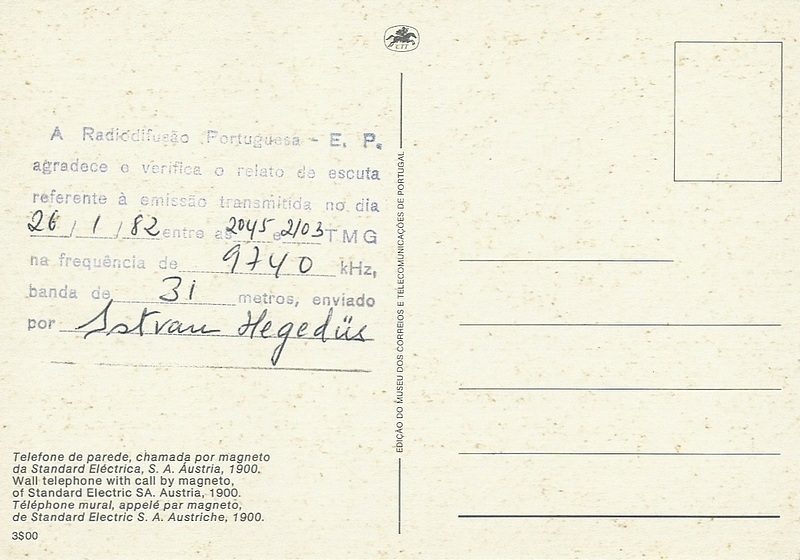 CTT
A Radiodifusão Portuguesa - E. P.
agradece e verifica o relato de escuta
referente à emissão transmitida no dia
26 / 1 / 82 entre as 2045 e 2103 TMG
na frequência de 9740 kHz,
banda de 31 metros, enviado
por Istvan Hegedüs
EDIÇÃO DO MUSEU DOS CORREIOS E TELECOMUNICAÇÕES DE PORTUGAL
Telefone de parede, chamada por magneto
da Standard Eléctrica, S. A. Áustria, 1900.
Wall telephone with call by magneto,
of Standard Electric SA. Austria, 1900.
Téléphone mural, appelé par magneto,
de Standard Electric S. A. Austriche, 1900.
3$00